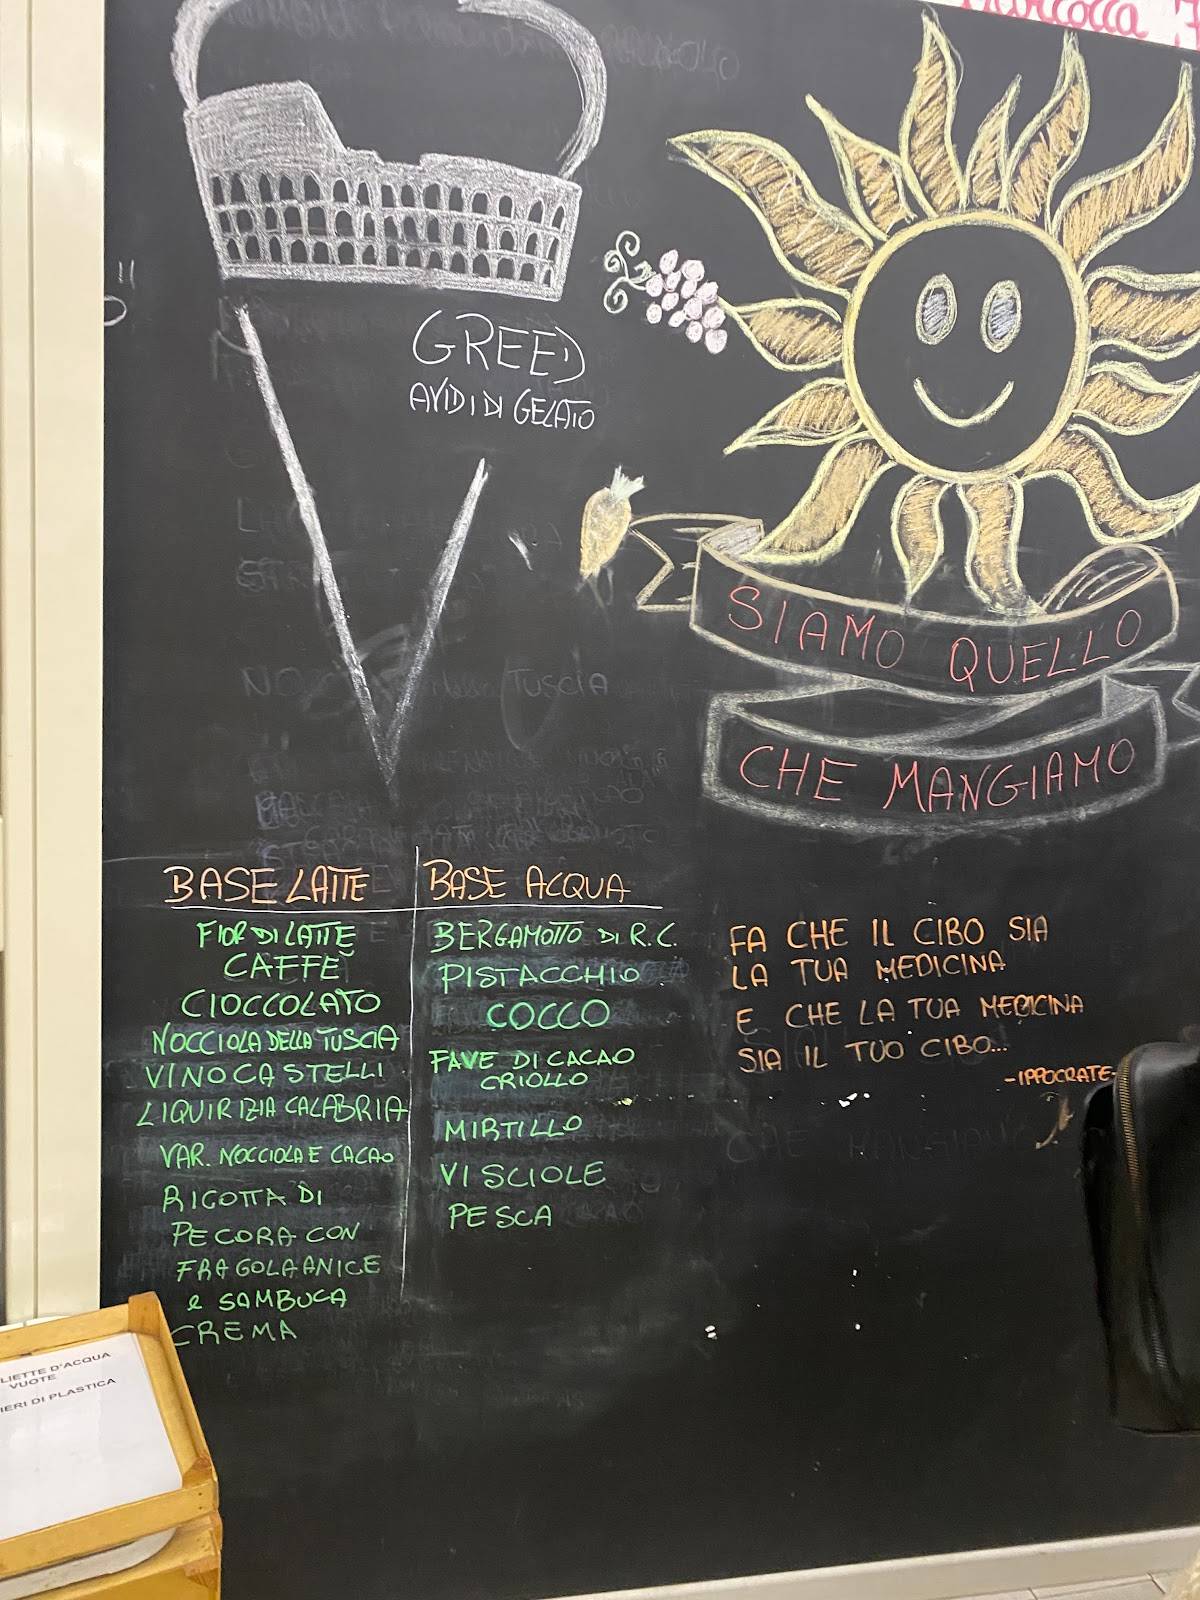 GREED
AVIDI DI GELATO
SIAMO QUELLO
CHE MANGIAMO
TUSCIA
BASE LATTE
FIOR DI LATTE
CAFFÈ
CIOCCOLATO
NOCCIOLA DELLA TUSCIA
VINO CASTELLI
LIQUIRIZIA CALABRIA
VAR. NOCCIOLA E CACAO
RICOTTA DI
PECORA CON
FRAGOLA ANICE
e SAMBUCA
CREMA
BASE ACQUA
BERGAMOTTO DI R.C.
PISTACCHIO
COCCO
FAVE DI CACAO
CRIOLLO
MIRTILLO
VISCIOLE
PESCA
FA CHE IL CIBO SIA
LA TUA MEDICINA
E CHE LA TUA MEDICINA
SIA IL TUO CIBO...
-IPPOCRATE-
LIETTE D'ACQUA
VUOTE
IERI DI PLASTICA